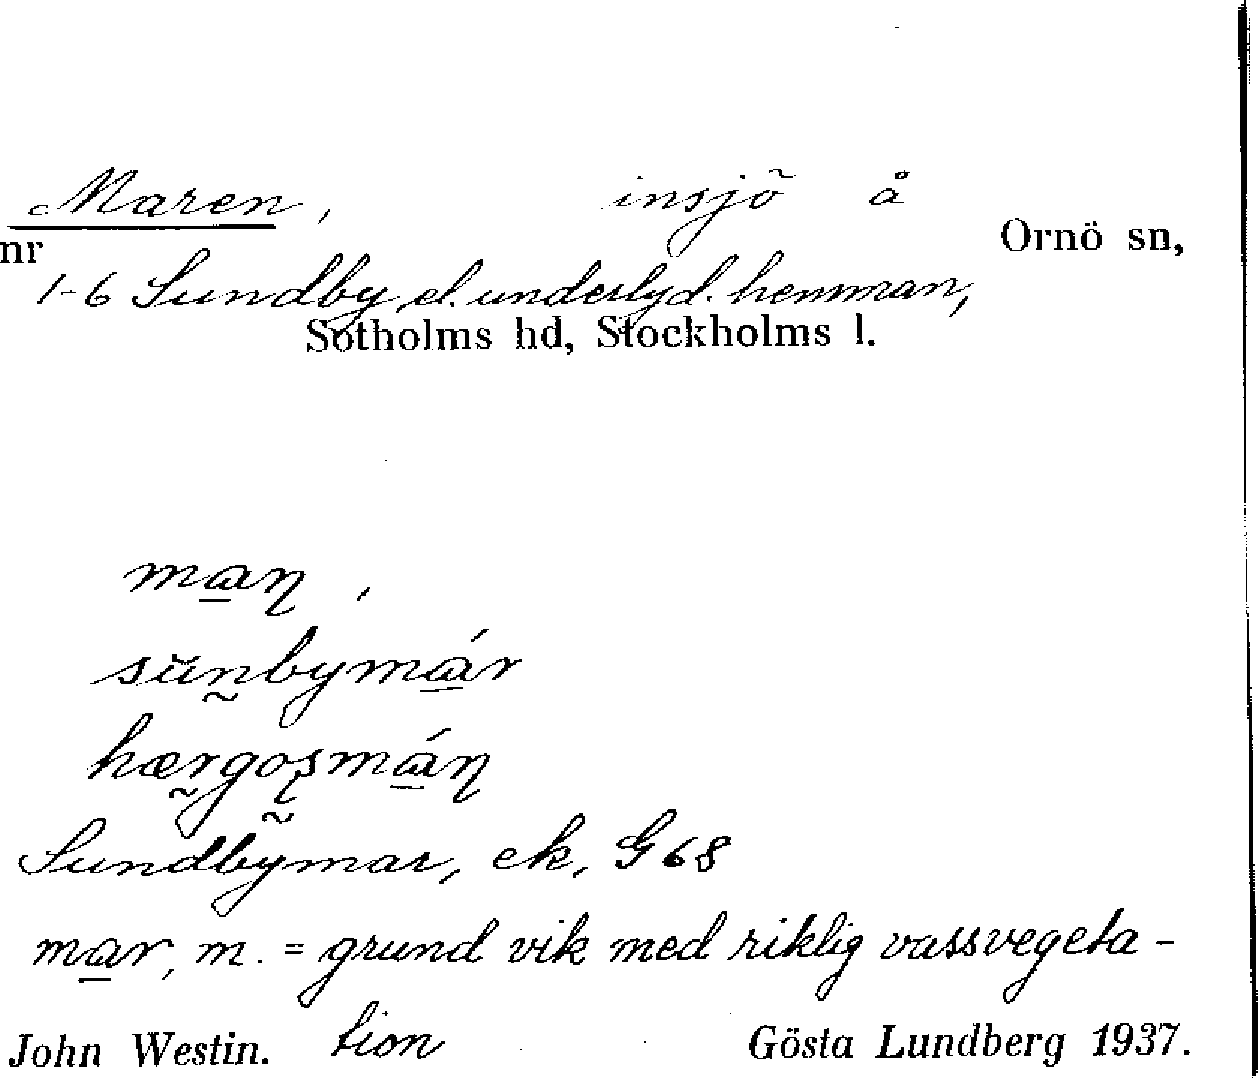 Maren, insjö å Ornö sn,
nr
1-6 Sundby el. underlyd. hemman,
Sotholms hd, Stockholms l.
ma̲ɳ,
sŭn̰bymá̲r
hær̰goʂ̰má̲ɳ
Sundbymar, ek, G68
ma̲r, m. = grund vik med riklig vassvegeta-
tion
John Westin. Gösta Lundberg 1937.